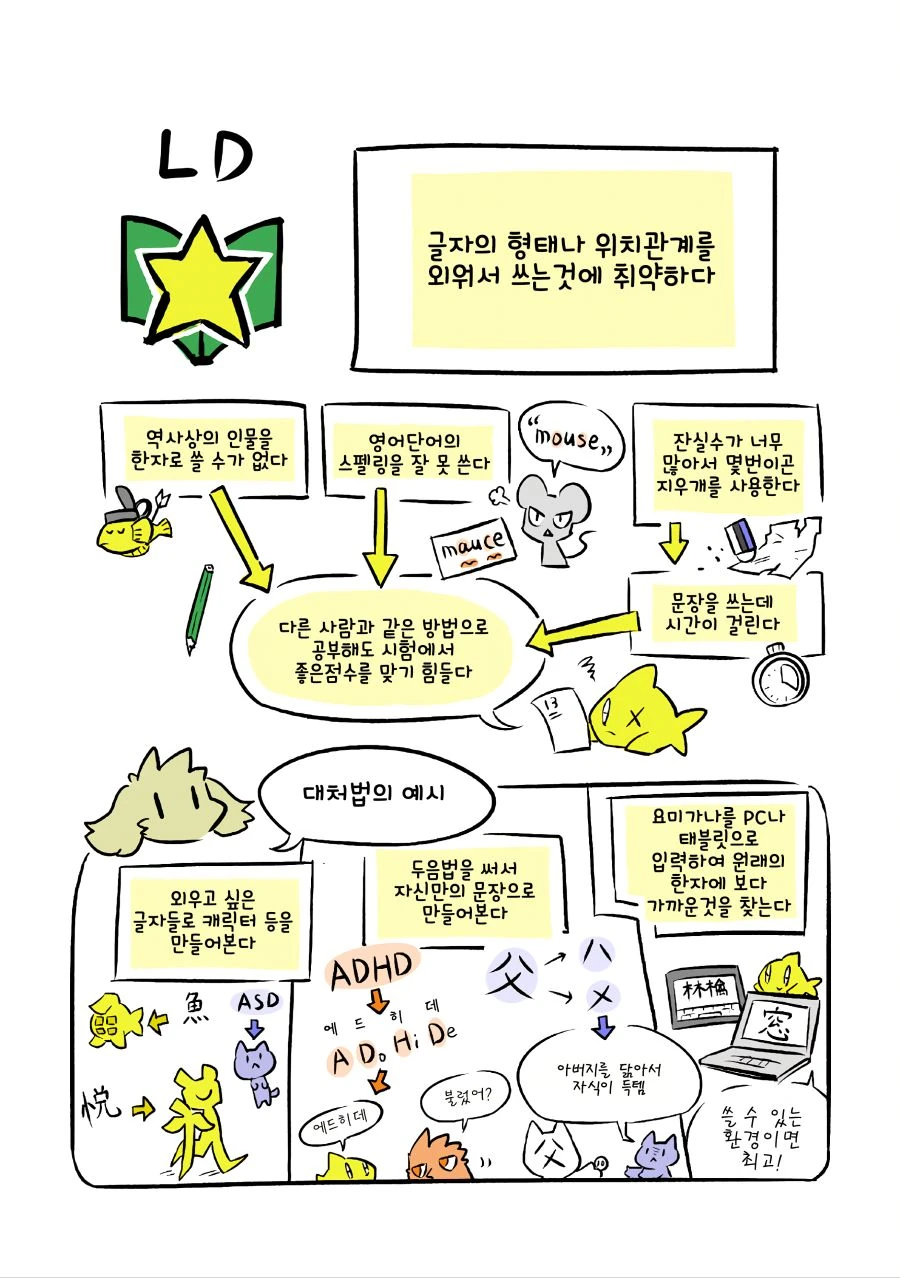 LD
글자의 형태나 위치관계를
외워서 쓰는것에 취약하다
역사상의 인물을
한자로 쓸 수가 없다
영어단어의
스펠링을 잘 못 쓴다
“mouse„
mauce
잔실수가 너무
많아서 몇번이곤
지우개를 사용한다
문장을 쓰는데
시간이 걸린다
다른 사람과 같은 방법으로
공부해도 시험에서
좋은점수를 맞기 힘들다
13
대처법의 예시
외우고 싶은
글자들로 캐릭터 등을
만들어본다
魚
ASD
悦
두음법을 써서
자신만의 문장으로
만들어본다
ADHD
에 드 히 데
A Do Hi De
에드히데
불렀어?
父
ハ
メ
아버지를 닮아서
자식이 득템
요미가나를 PC나
태블릿으로
입력하여 원래의
한자에 보다
가까운것을 찾는다
林檎
窓
쓸 수 있는
환경이면
최고!